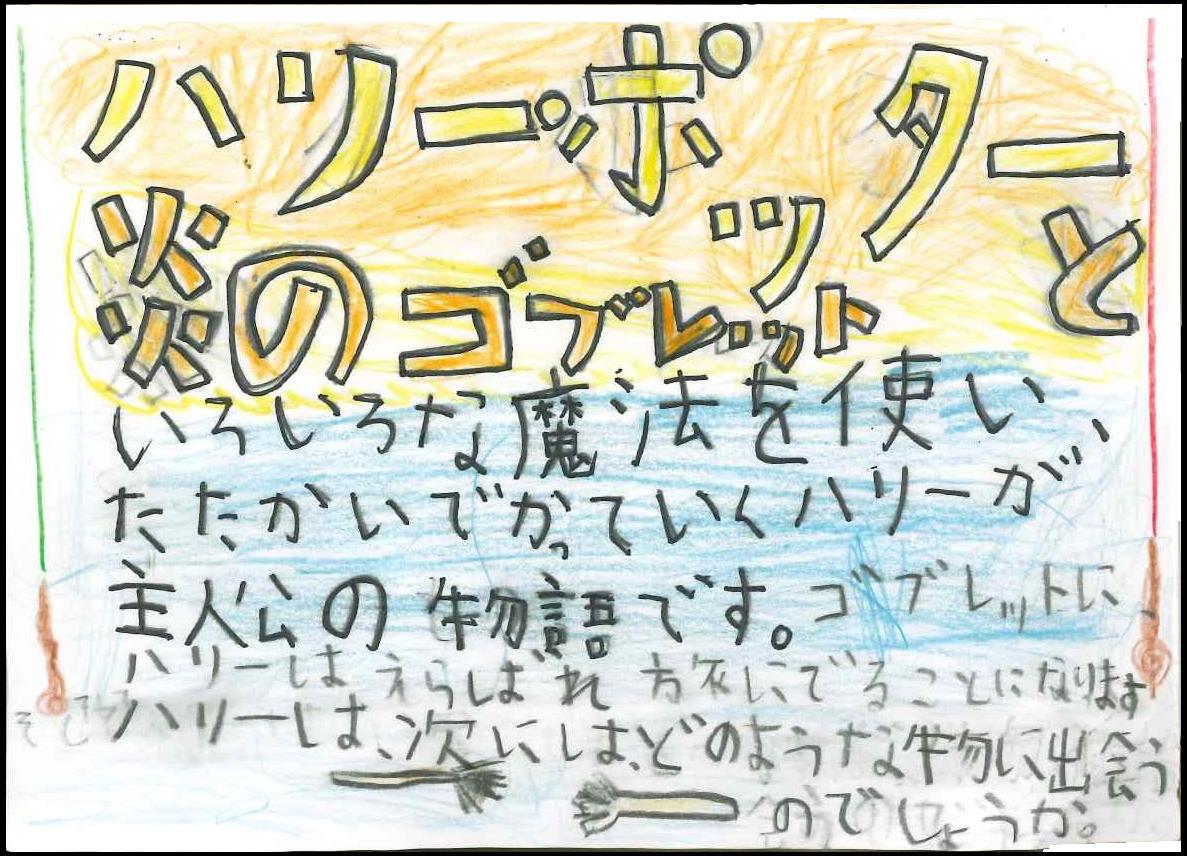 ハリー・ポッターと
炎のゴブレット
いろいろな魔法を使い、
たたかいでかっていくハリーが、
主人公の物語です。ゴブレットに、
ハリーはえらばれ旅にでることになります
そしてハリーは、次には、どのような物に出会う
のでしょうか。